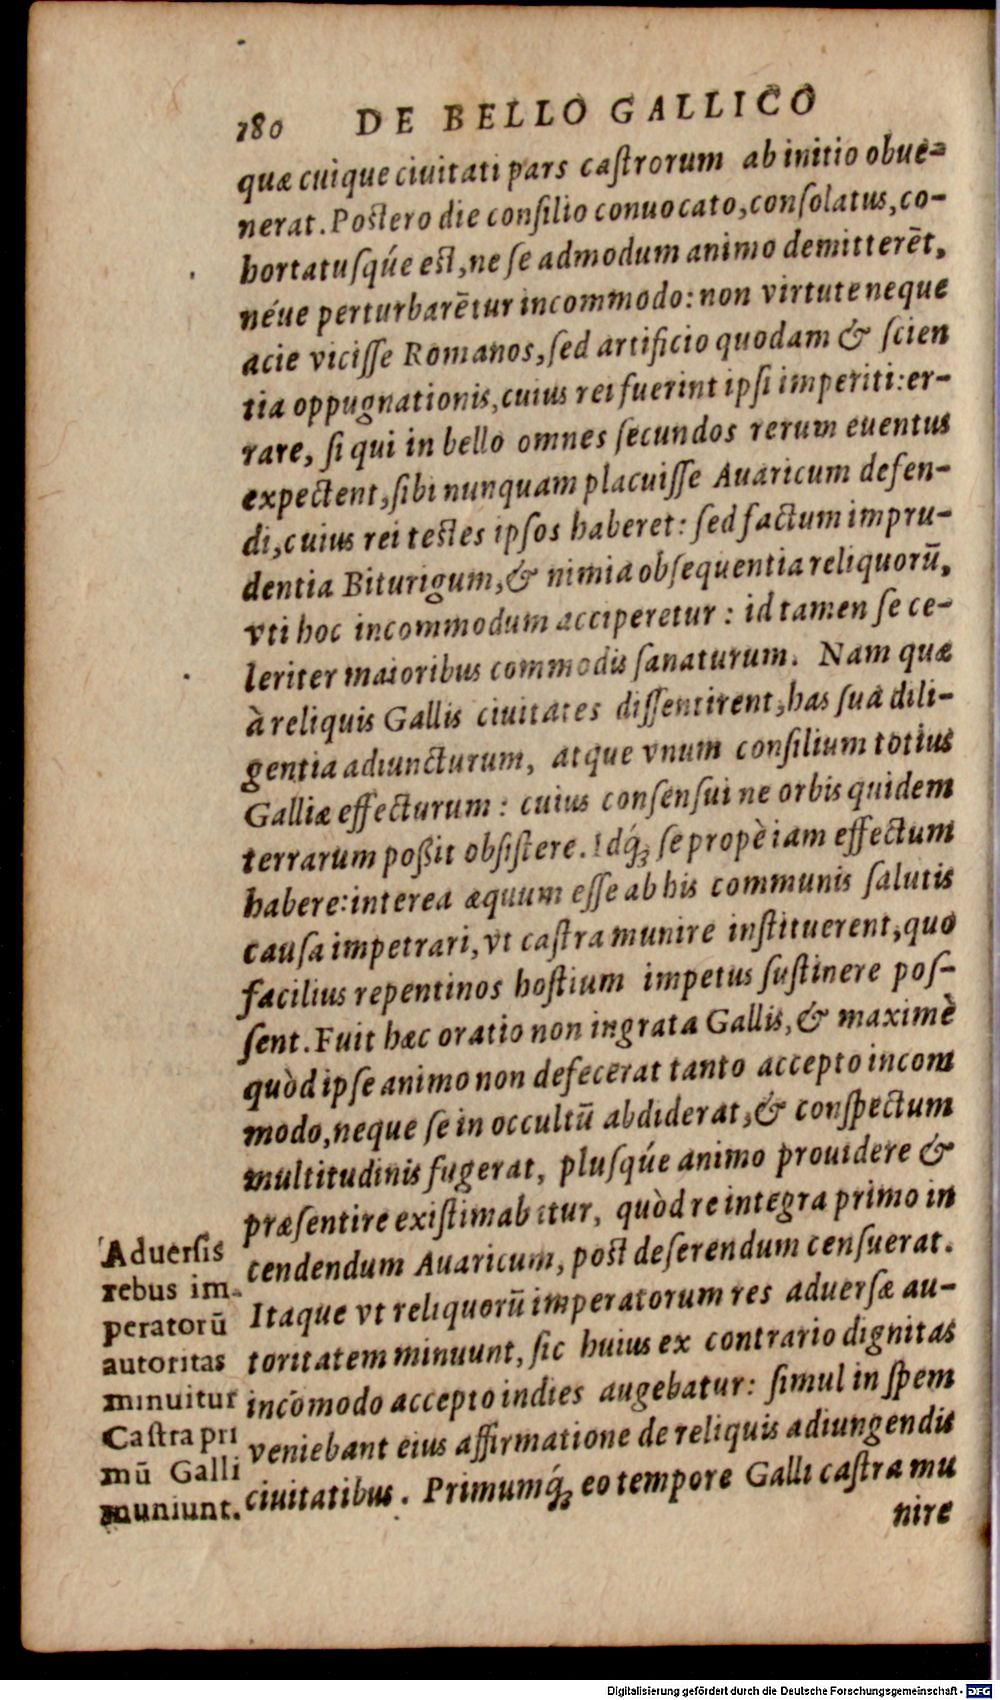 180 DE BELLO GALLICO
quæ cuique ciuitati pars caſtrorum ab initio obue-
nerat. Poſtero die conſilio conuocato, conſolatus, co-
hortatuſq́ue eſt, ne ſe admodum animo demitterēt,
néue perturbarētur incommodo: non virtute neque
acie viciſſe Romanos, ſed artificio quodam & ſcien
tia oppugnationis, cuius rei fuerint ipſi imperiti: er-
rare, ſi qui in bello omnes ſecundos rerum euentus
expectent, ſibi nunquam placuiſſe Auaricum defen-
di, cuius rei teſtes ipſos haberet: ſed factum impru-
dentia Biturigum, & nimia obſequentia reliquorū,
vti hoc incommodum acciperetur: id tamen ſe ce-
leriter maioribus commodis ſanaturum. Nam quæ
à reliquis Gallis ciuitates diſſentirent, has ſua dili-
gentia adiuncturum, atque vnum conſilium totius
Galliæ effecturum: cuius conſenſui ne orbis quidem
terrarum poßit obſiſtere. Idq́ꝫ ſe propè iam effectum
habere: interea æquum eſſe ab his communis ſalutis
cauſa impetrari, vt caſtra munire inſtituerent, quo
facilius repentinos hoſtium impetus ſuſtinere poſ-
ſent. Fuit hæc oratio non ingrata Gallis, & maximè
quòd ipſe animo non defecerat tanto accepto incom
modo, neque ſe in occultū abdiderat, & conſpectum
multitudinis fugerat, pluſq́ue animo prouidere &
præſentire exiſtimabatur, quòd re integra primo in
cendendum Auaricum, poſt deſerendum cenſuerat.
Itaque vt reliquorū imperatorum res aduerſæ au-
toritatem minuunt, ſic huius ex contrario dignitas
incōmodo accepto indies augebatur: ſimul in ſpem
veniebant eius affirmatione de reliquis adiungendis
ciuitatibus. Primumq́ꝫ eo tempore Galli caſtra mu
nire
Aduerſis
rebus im-
peratorū
autoritas
minuitur
Caſtra pri
mū Galli
muniunt.
Digitalisierung gefördert durch die Deutsche Forschungsgemeinschaft - DFG